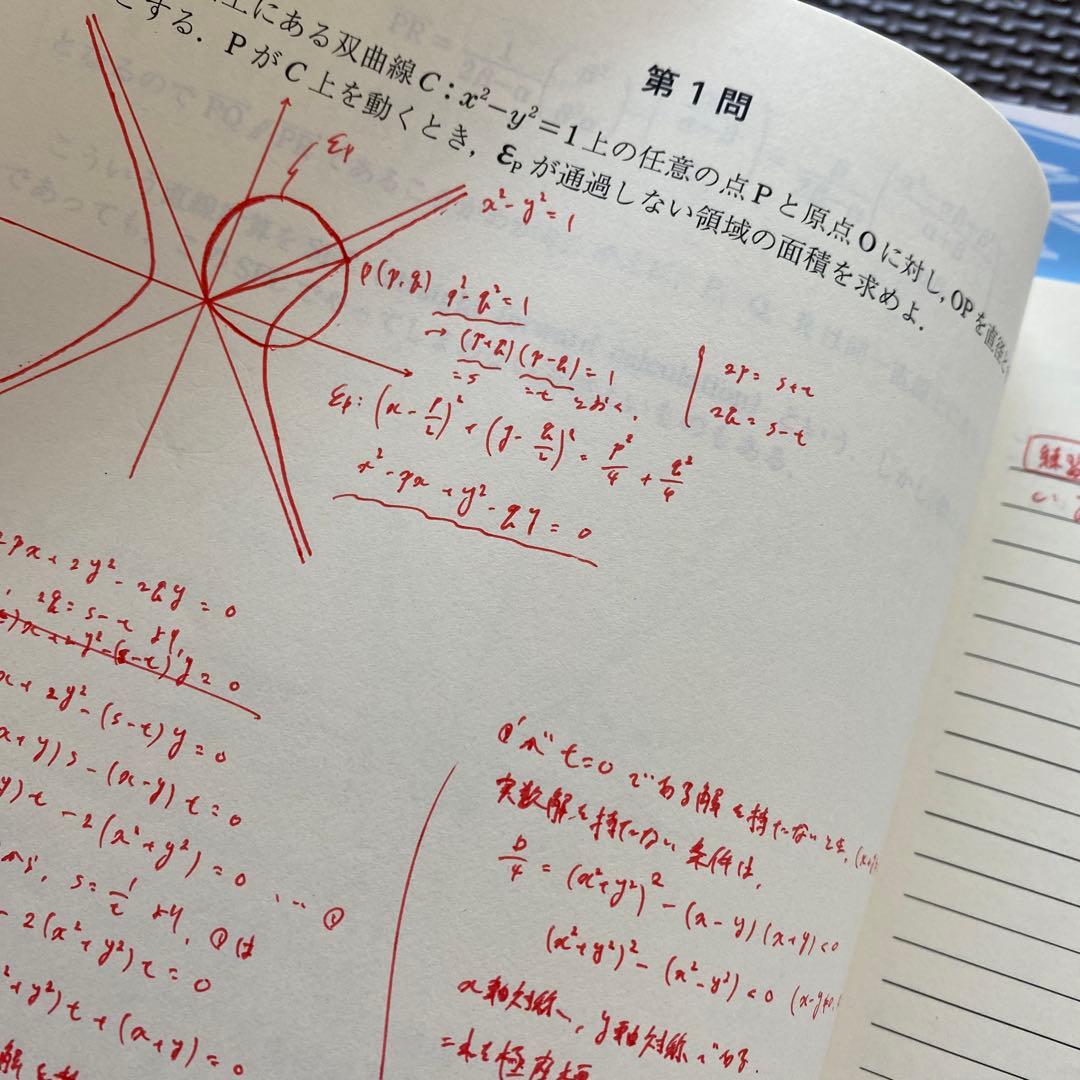 第1問
上にある双曲線C:x²−y²=1上の任意の点Pと原点Oに対し,OPを直径と
とする.PがC上を動くとき,εₚが通過しない領域の面積を求めよ.
εₚ
x²-y²=1
P(p,q)
p²-q²=1
→ (p+q)(p-q)=1
=s =t とおく.
2p=s+t
2q=s-t
εₚ: (x-p/2)²+(y-q/2)²=p²/4+q²/4
x²-px+y²-qy=0
2px+2y²-2qy=0
2q=s-t より,
x+2y²-(s-t)y=0
x+y)s-(x-y)t=0
y)t-2(x²+y²)=0 … ①
から, s=1/t より, ①は
-2(x²+y²)t=0
²+y²)t+(x+y)=0
①'が t=0 である解を持たないとき,
実数解を持たない条件は,
D/4=(x²+y²)²-(x-y)(x+y)<0
(x²+y²)²-(x²-y²)<0
x軸対称, y軸対称である.
これを極座標